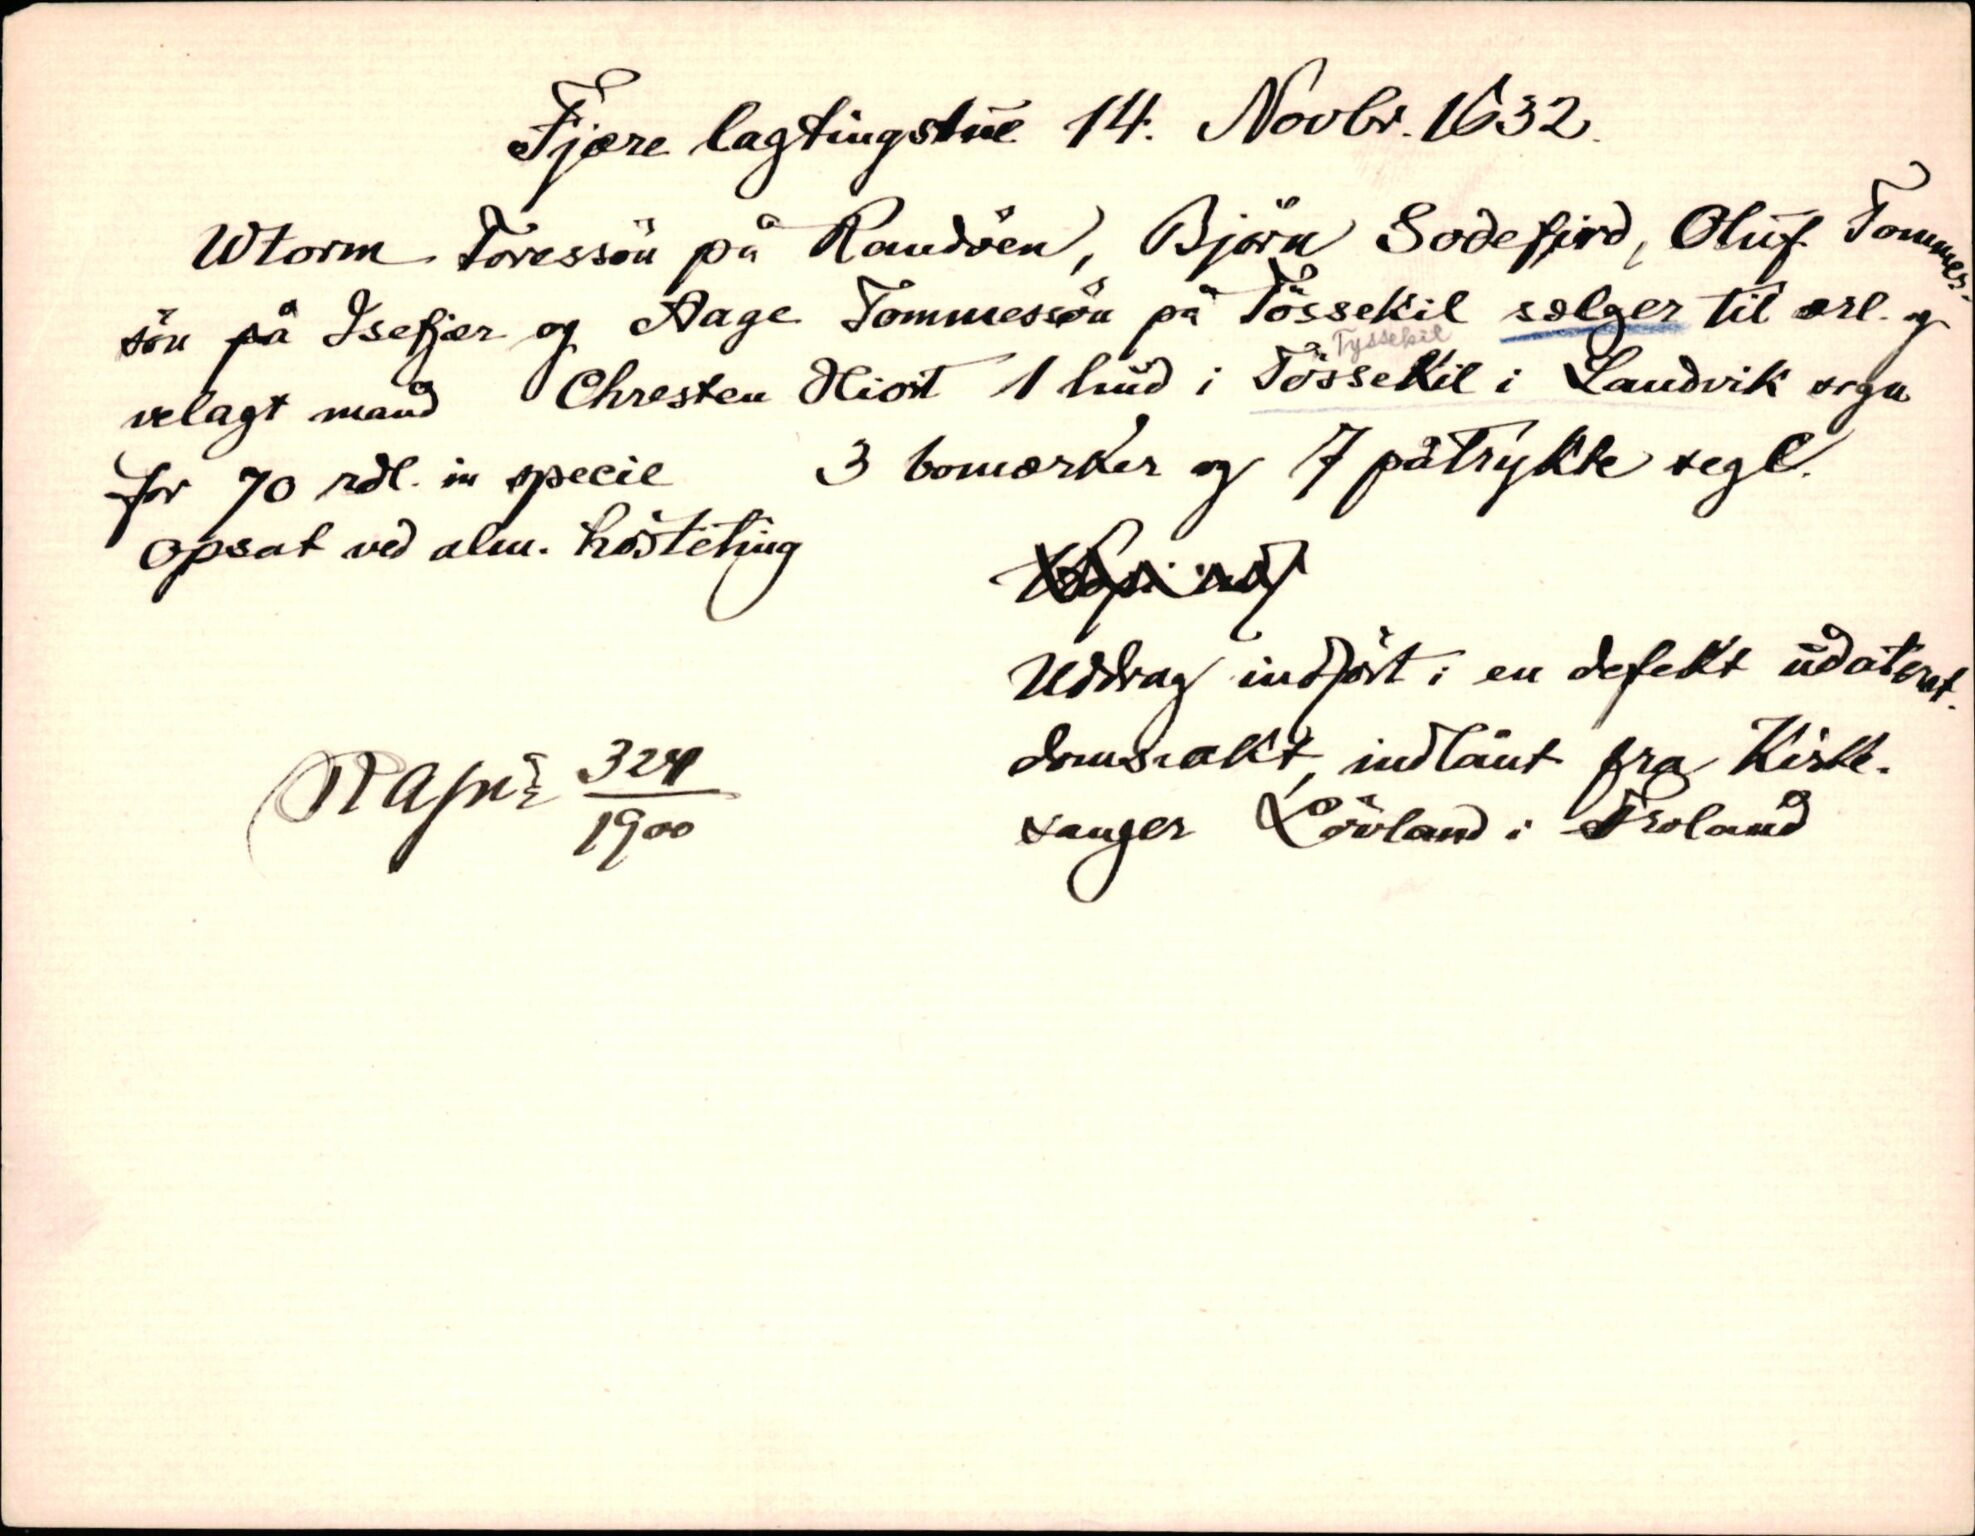 Fjære lagtingstue 14. Novbr. 1632.
Wtorm Toressön på Randöen, Björn Sodefjord, Oluf Tommes-
sön på Isefjær og Aage Tommessön på Tössekil sælger til ærl. og
Tyssekil
velagt mand Chresten Hiort 1 hud i Tössekil i Landvik sogn
for 70 rdl. in specie 3 bomærker og 7 påtrykte segl.
opsat ved alm. hösteting
Uddrag indfört i en defekt udateret.
domsakt, indlånt fra Kirke.
sanger Lövland i Froland
324
1900